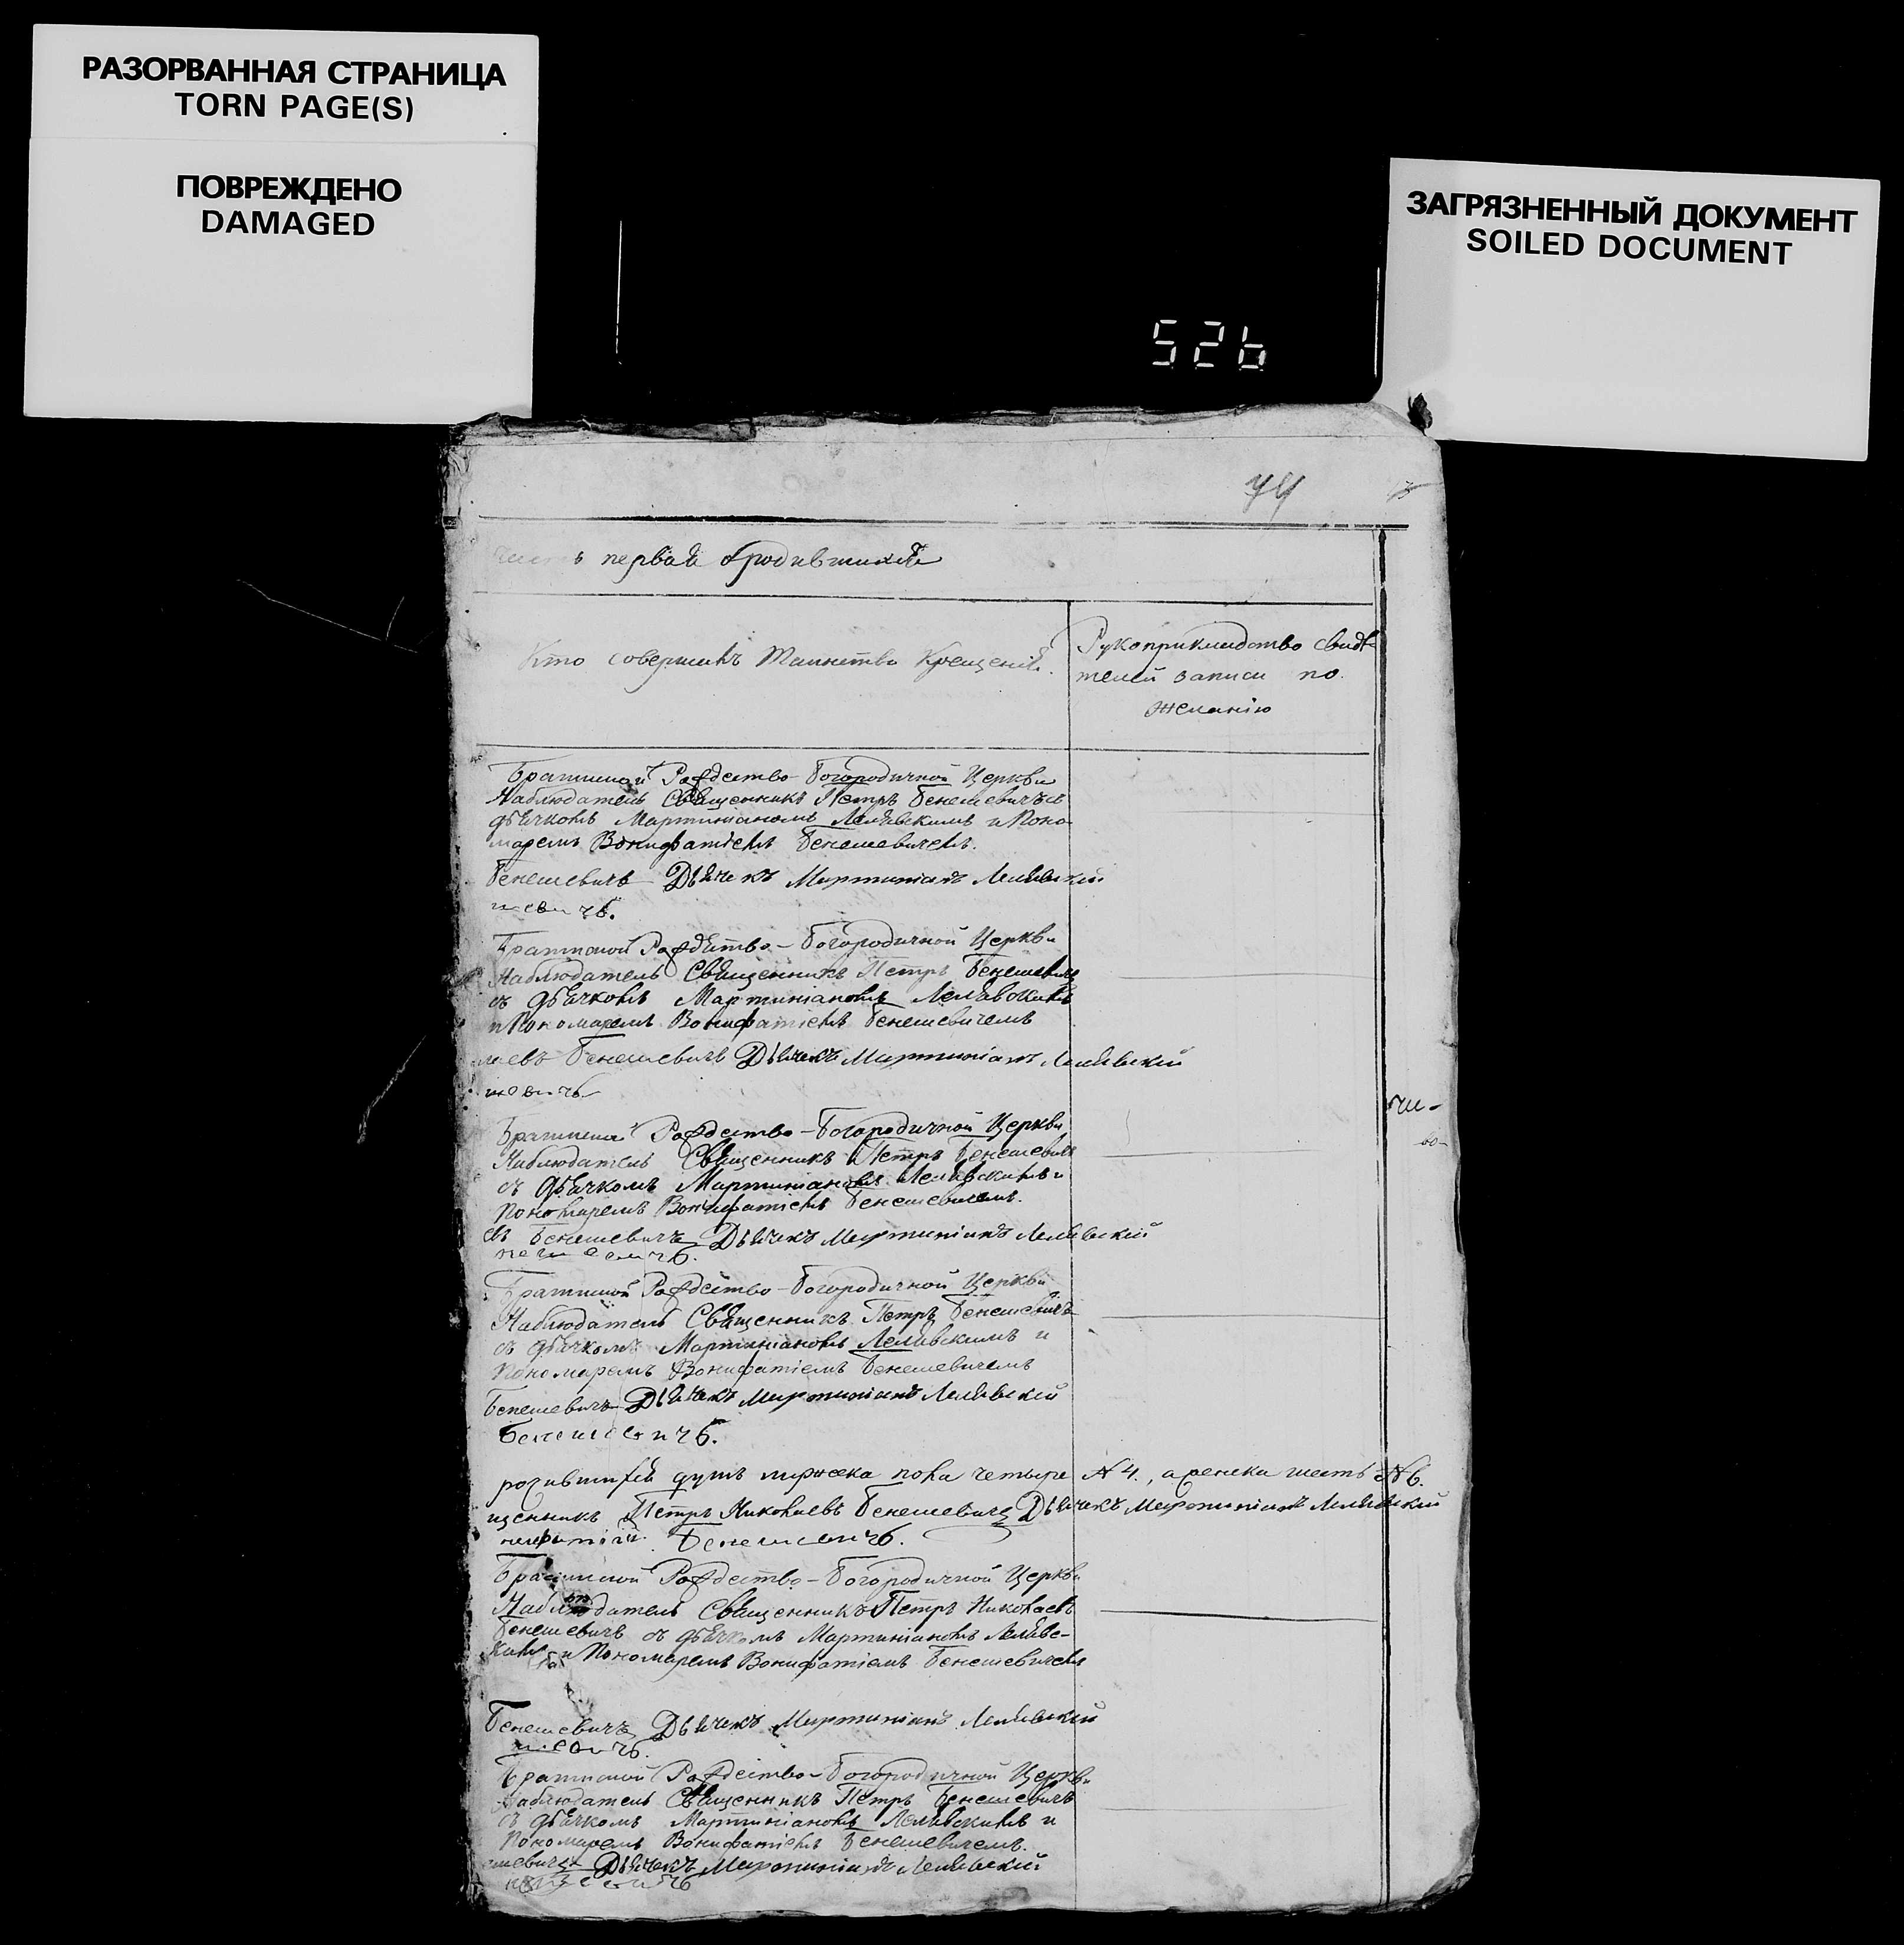 РАЗОРВАННАЯ СТРАНИЦА
TORN PAGE(S)
ПОВРЕЖДЕНО
DAMAGED
ЗАГРЯЗНЕННЫЙ ДОКУМЕНТ
SOILED DOCUMENT
526
74
первая о родившихся
Кто совершалъ Таинство Крещенія.
Рукоприкладство свидѣ-
телей записи по
желанію
Рождество-Богородичной Церкви
Наблюдатель Священникъ Петръ Бенешевичъ съ
дьячкомъ Мартиніаномъ Лелявскимъ и Поно-
маремъ Вонифатіемъ Бенешевичемъ.
Бенешевичъ Дьячекъ Мартиніанъ Лелявскій
шевичъ.
Рождество-Богородичной Церкви
Наблюдатель Священникъ Петръ Бенешевичъ
съ дьячкомъ Мартиніаномъ Лелявскимъ
и Пономаремъ Вонифатіемъ Бенешевичемъ
лаевъ Бенешевичъ Дьячекъ Мартиніанъ Лелявскій
шевичъ
Рождество-Богородичной Церкви
Наблюдатель Священникъ Петръ Бенешевичъ
съ дьячкомъ Мартиніаномъ Лелявскимъ и
Пономаремъ Вонифатіемъ Бенешевичемъ.
евъ Бенешевичъ Дьячекъ Мартиніанъ Лелявскій
нешевичъ.
Рождество-Богородичной Церкви
Наблюдатель Священникъ Петръ Бенешевичъ
съ дьячкомъ Мартиніаномъ Лелявскимъ и
Пономаремъ Вонифатіемъ Бенешевичемъ
Бенешевичъ Дьячекъ Мартиніанъ Лелявскій
Бенешевичъ.
родившихся душъ мужеска пола четыре №4., а женска шесть №6.
щенникъ Петръ Николаевъ Бенешевичъ Дьячекъ Мартиніанъ Лелявскій
нифатій Бенешевичъ.
Рождество-Богородичной Церкви
Наблюдатель Священникъ Петръ Николаевъ
Бенешевичъ съ дьячкомъ Мартиніаномъ Лелявс-
кимъ и Пономаремъ Вонифатіемъ Бенешевичемъ
Бенешевичъ Дьячекъ Мартиніанъ Лелявскій
шевичъ.
Рождество-Богородичной Церкви
Наблюдатель Священникъ Петръ Бенешевичъ
съ дьячкомъ Мартиніаномъ Лелявскимъ и
Пономаремъ Вонифатіемъ Бенешевичемъ.
ешевичъ Дьячекъ Мартиніанъ Лелявскій